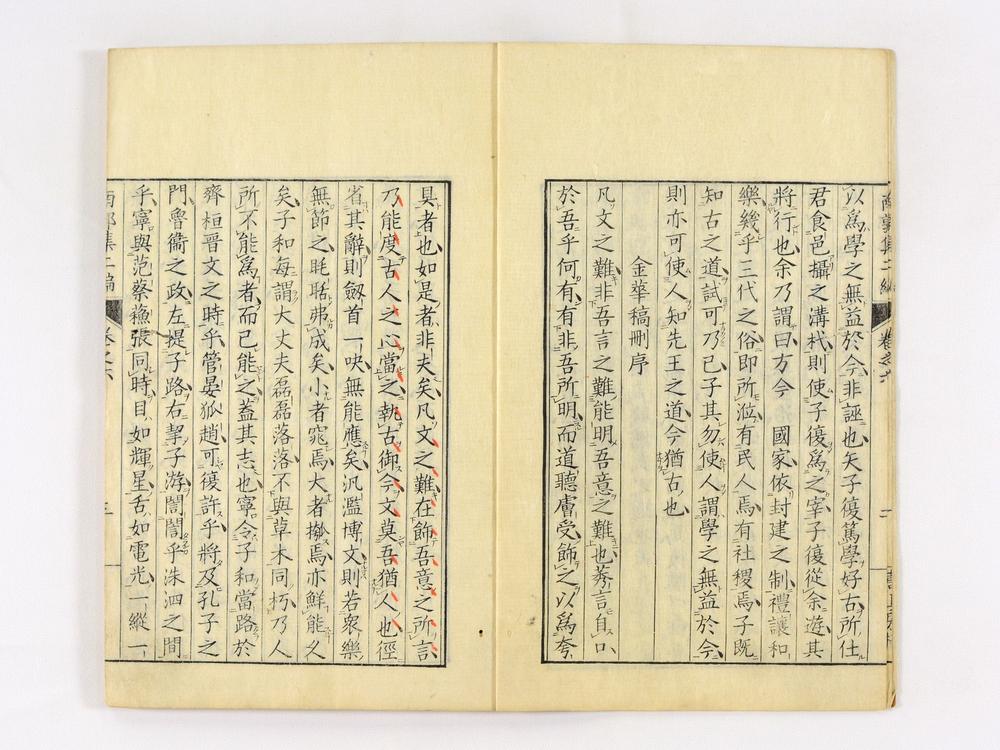 以爲學之無益於今非誣也矢子復篤學好古所仕
君食邑攝之溝杙則使子復爲之宰子復從余遊其
將行也余乃謂曰方今 國家依封建之制禮讓和
樂幾乎三代之俗即所涖有民人焉有社稷焉子既
知古之道試可乃已子其勿使人謂學之無益於今
則亦可使人知先王之道今猶古也
金華稿刪序
凡文之難非吾言之難能明吾意之難也莠言自口
於吾乎何有有非吾所明而道聽膚受飾之以爲夸
具者也如是者非夫矣凡文之難在飾吾意之所言
乃能度古人之心當之執古御今文莫吾猶人也徑
省其辭則劔首一吷無能應矣汎濫博文則若衆樂
無節之眊聒弗成矣小者窕焉大者摦焉亦鮮能乂
矣子和每謂大丈夫磊磊落落不與草木同朽乃人
所不能爲者而已能之蓋其志也寧令子和當路於
齊桓晋文之時乎管晏狐趙可復許乎將及孔子之
門魯衞之政左提子路右挈子游誾誾乎洙泗之間
乎寧與范蔡穐張同時目如輝星舌如電光一縱一
南郭集二編
卷之六